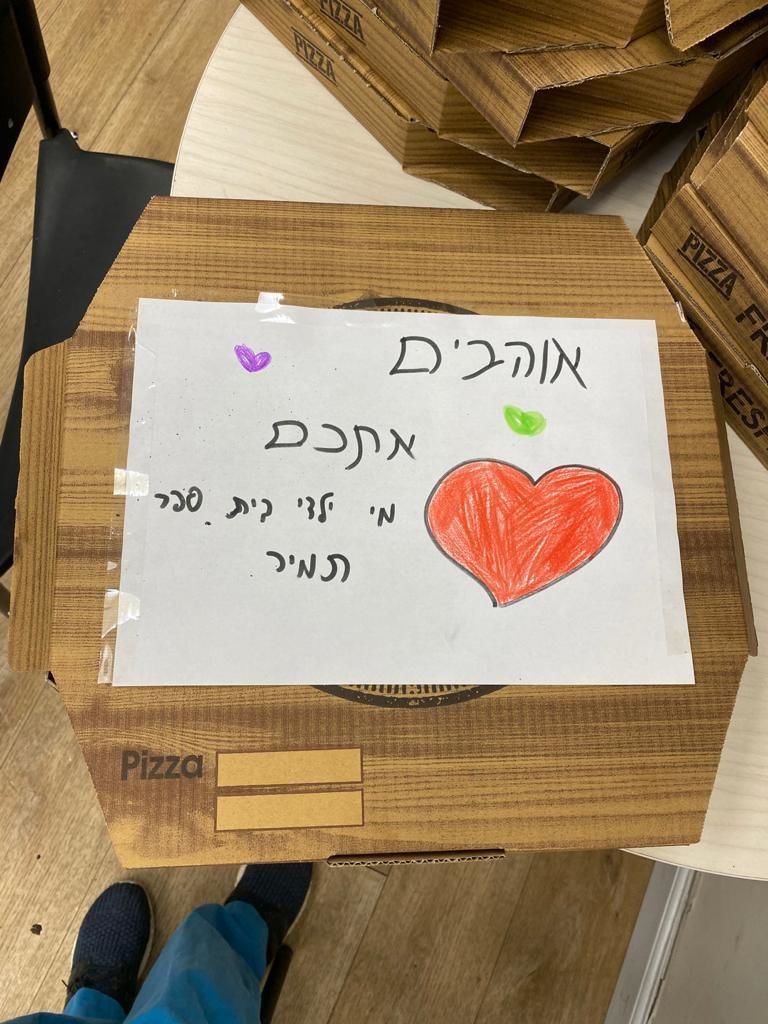 PIZZA
PIZZA
PIZZA FRE
FRESH
אוהבים
אתכם
מי ילדי בית ספר
תמיר
Pizza